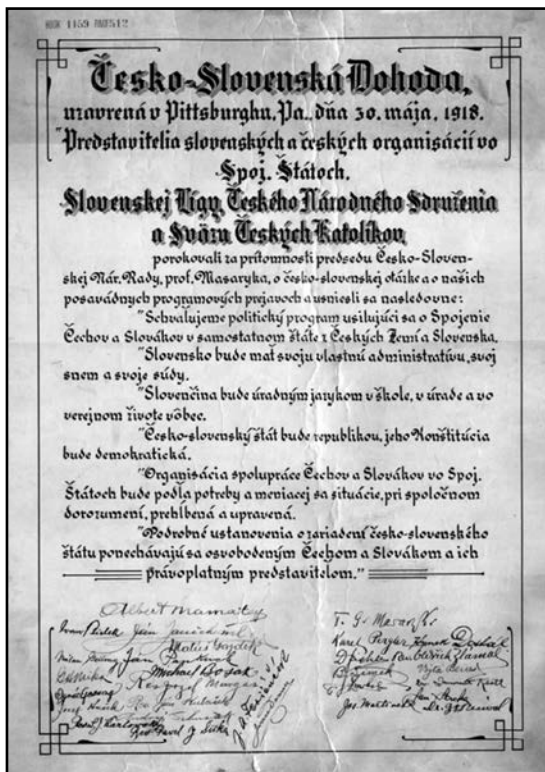 BOOK 1159 PAGE 512
Česko-Slovenská Dohoda,
uzavrená v Pittsburghu, Pa., dňa 30. mája, 1918.
"Predstavitelia slovenských a českých organisácií vo
Spoj. Štátoch,
Slovenskej Ligy, Českého Národného Sdruženia
a Sväzu Českých Katolíkov,
porokovali za prítomnosti predsedu Česko-Sloven-
skej Nár. Rady, prof. Masaryka, o česko-slovenskej otázke a o našich
posavádnych programových prejavoch a usniesli sa nasledovne:
"Schvaľujeme politický program usilujúci sa o Spojenie
Čechov a Slovákov v samostatnom štáte z Českých Zemí a Slovenska.
"Slovensko bude mať svoju vlastnú administratívu, svoj
snem a svoje súdy.
"Slovenčina bude úradným jazykom v škole, v úrade a vo
verejnom živote vôbec.
"Česko-slovenský štát bude republikou, jeho Konštitúcia
bude demokratická.
"Organisácia spolupráce Čechov a Slovákov vo Spoj.
Štátoch bude podľa potreby a meniacej sa situácie, pri spoločnom
dorozumení, prehĺbená a upravená.
"Podrobné ustanovenia o zariadení česko-slovenského
štátu ponechávajú sa osvobodeným Čechom a Slovákom a ich
právoplatným predstaviteľom."
Albert Mamatey
T. G. Masaryk
Ivan Bielek Ján Janček ml
Karel Pergler Hynek Dostál
Matúš Gazdík
Milan Getting Ján Pankuch
Michael Bosák
Rev Jozef Murgaš
Rev Pavel J Šiška
Jos. Martinek